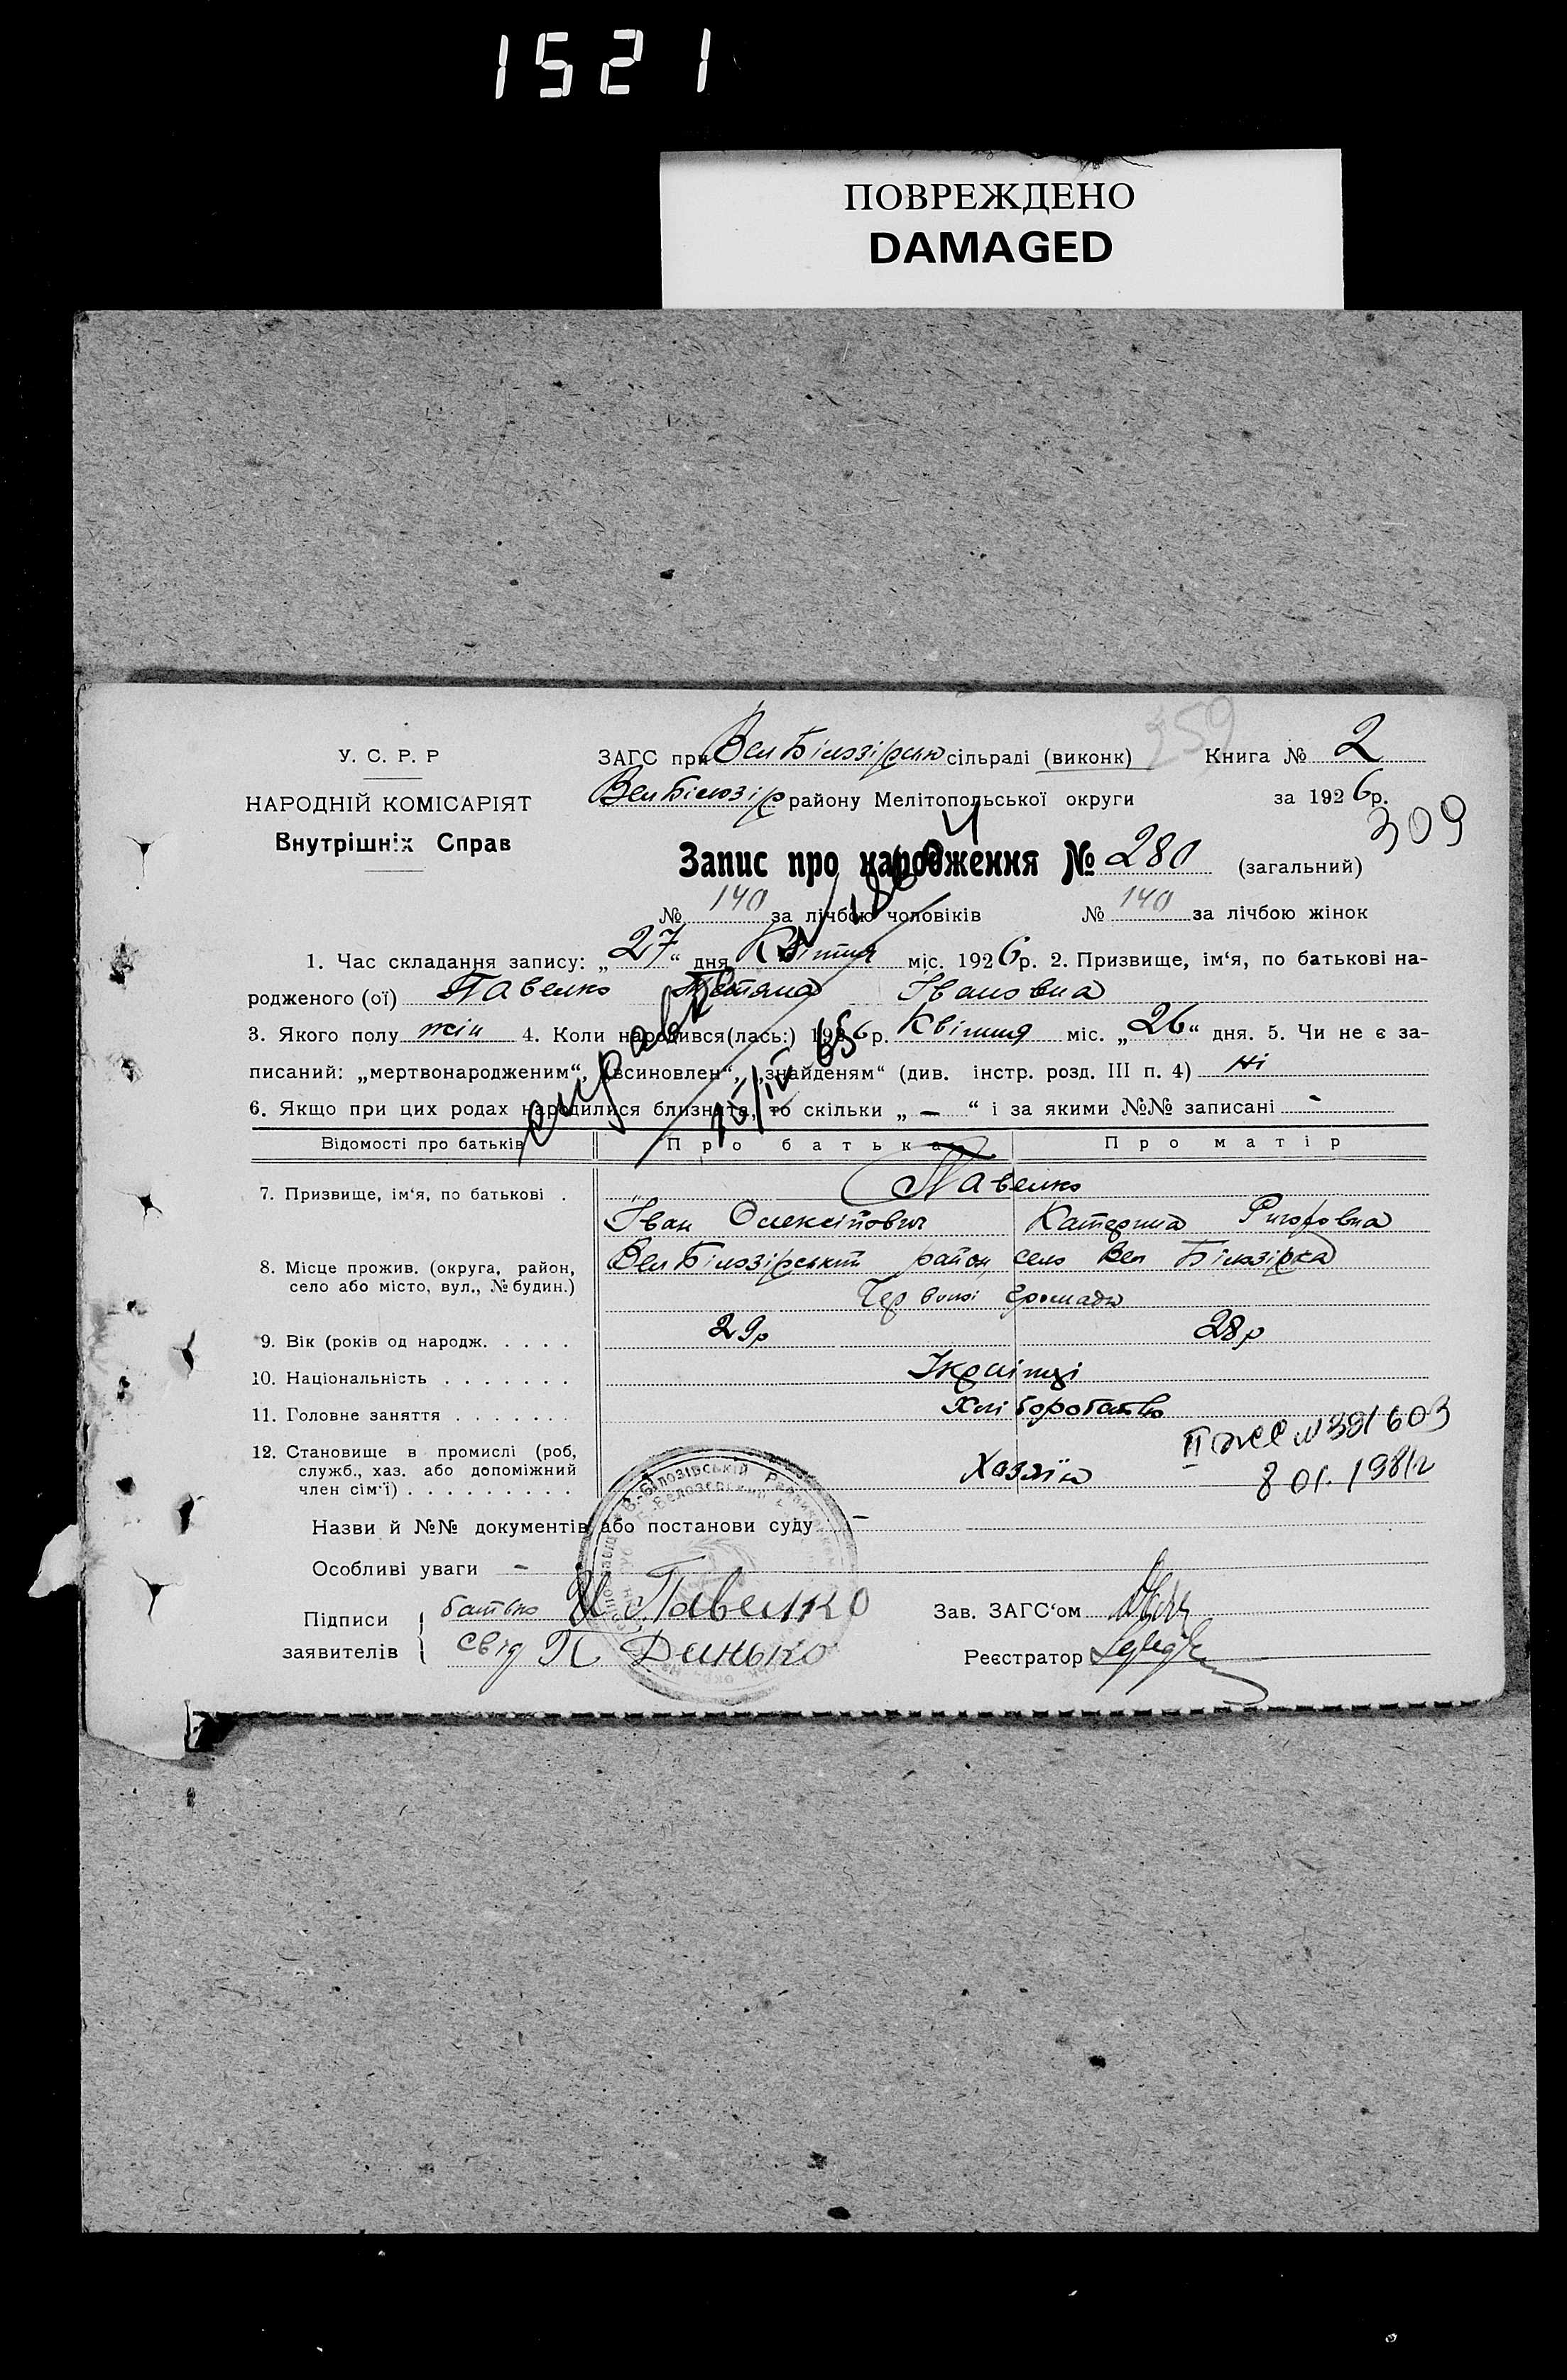 1521
ПОВРЕЖДЕНО
DAMAGED
259
У. С. Р. Р
НАРОДНІЙ КОМІСАРІЯТ
Внутрішніх Справ
ЗАГС при Вел Білозірскю сільраді (виконк) Книга № 2
Вел Білозір району Мелітопольської округи за 1926 р.
309
Запис про народження № 280 (загальний)
№ 140 за лічбою чоловіків № 140 за лічбою жінок
1. Час складання запису: „27“ дня Квітня міс. 1926 р. 2. Призвище, ім‘я, по батькові на-
родженого (ої) Павелко Тетяна Івановна
3. Якого полу жін 4. Коли народився(лась:) 1926 р. Квітня міс. „26“ дня. 5. Чи не є за-
писаний: „мертвонародженим“, „всиновлен“, „знайденям“ (див. інстр. розд. III п. 4) Ні
6. Якщо при цих родах народилися близнята, то скільки „ — “ і за якими №№ записані -
справка
Відомості про батьків Про батька Про матір
7. Призвище, ім‘я, по батькові . Павелко
Іван Олексійович Катерина Григоровна
8. Місце прожив. (округа, район, село або місто, вул., № будин.) Вел Білозірський район, село Вел Білозірка
Червоної громади
9. Вік (років од народж. . . . . 29р 28р
10. Національність . . . . . . . Українці
11. Головне заняття . . . . . . . Хліборобство
12. Становище в промислі (роб, служб., хаз. або допоміжний член сім‘ї) . . . . . . . . . Хазяїн
N 391603
8 01. 1981г
Назви й №№ документів або постанови суду -
Особливі уваги -
Підписи заявителів батько И. Павелко
свід П Динько
Зав. ЗАГС‘ом
Реєстратор